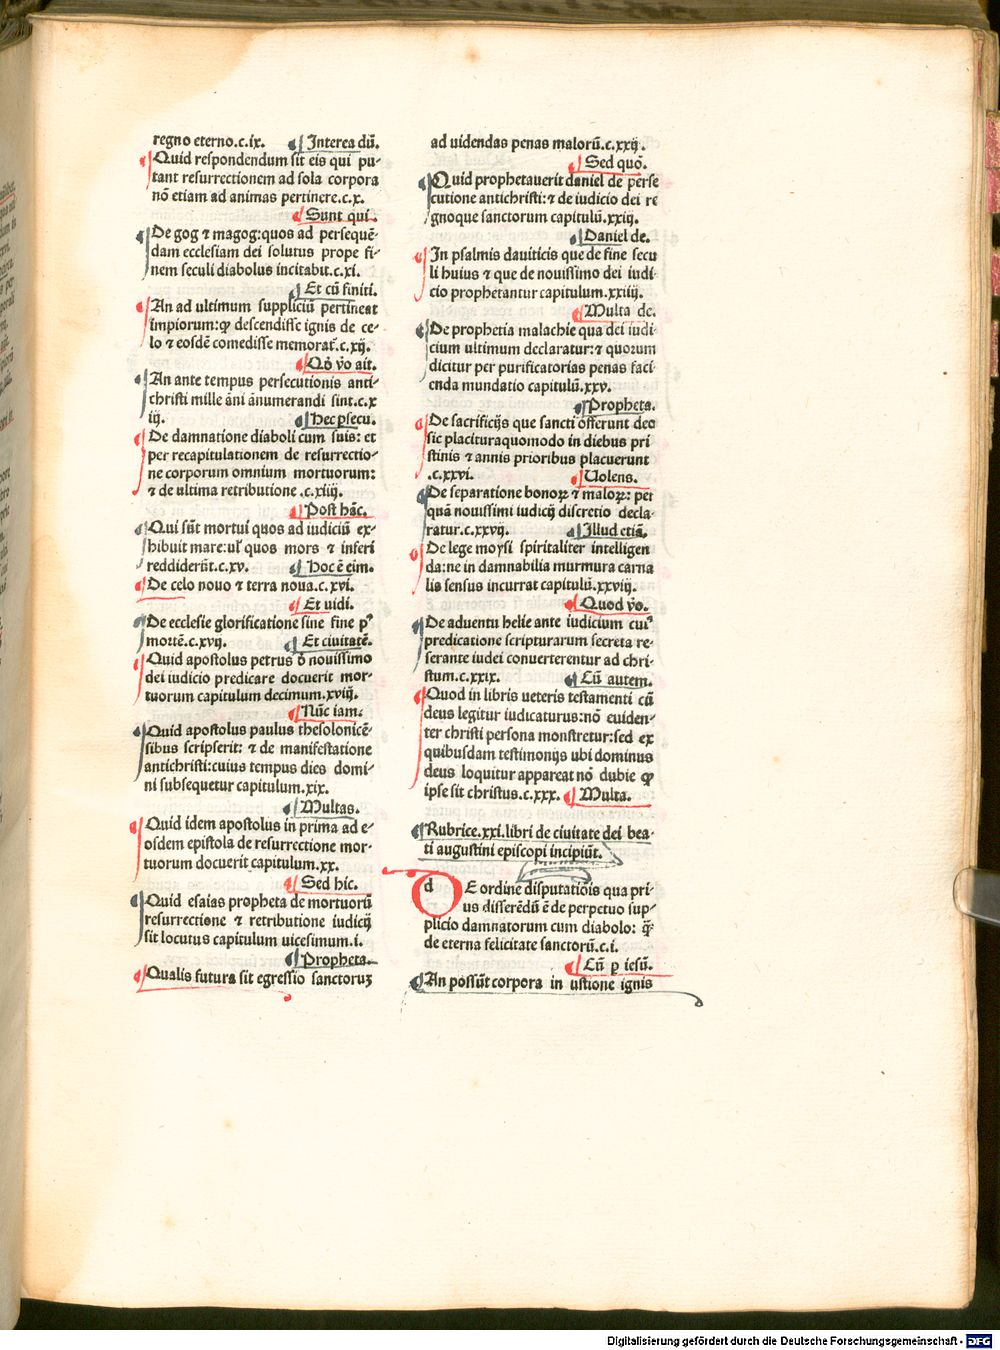 regno eterno.c.ix. Interea dū.
Quid respondendum sit eis qui pu⸗
tant resurrectionem ad sola corpora
nō etiam ad animas pertinere.c.x.
Sunt qui.
De gog ⁊ magog:quos ad persequē⸗
dam ecclesiam dei solutus prope fi⸗
nem seculi diabolus incitabit.c.xi.
Et cū finiti.
An ad ultimum suppliciū pertineat
impiorum:ꝙ descendisse ignis de ce⸗
lo ⁊ eosdē comedisse memorat᷑.c.xij.
Qō ṽo ait.
An ante tempus persecutionis anti⸗
christi mille āni ānumerandi sint.c.x
iij. Hec ꝑsecu.
De damnatione diaboli cum suis: et
per recapitulationem de resurrectio⸗
ne corporum omnium mortuorum:
⁊ de ultima retributione .c.xiiij.
Post hāc.
Qui sūt mortui quos ad iudiciū ex⸗
hibuit mare:ul᷑ quos mors ⁊ inferi
reddiderūt.c.xv. Hoc ē eim.
De celo nouo ⁊ terra noua.c.xvi.
Et uidi.
De ecclesie glorificatione sine fine pꝰ
mortē.c.xvij. Et ciuitatē.
Quid apostolus petrus d̄ nouissimo
dei iudicio predicare docuerit mor⸗
tuorum capitulum decimum.xviij.
Nūc iam.
Quid apostolus paulus thesolonicē⸗
sibus scripserit: ⁊ de manifestatione
antichristi:cuius tempus dies domi⸗
ni subsequetur capitulum.xix.
Multas.
Quid idem apostolus in prima ad e⸗
osdem epistola de resurrectione mor⸗
tuorum docuerit capitulum.xx.
Sed hic.
Quid esaias propheta de mortuorū
resurrectione ⁊ retributione iudicij
sit locutus capitulum uicesimum.i.
Propheta.
Qualis futura sit egressio sanctoruꝫ
ad uidendas penas malorū.c.xxij.
Sed quō.
Quid prophetauerit daniel de perse
cutione antichristi:⁊ de iudicio dei re
gnoque sanctorum capitulū.xxiij.
Daniel de.
In psalmis dauiticis que de fine secu
li huius ⁊ que de nouissimo dei iudi⸗
cio prophetantur capitulum.xxiiij.
Multa de.
De prophetia malachie qua dei iudi
cium ultimum declaratur:⁊ quorum
dicitur per purificatorias penas faci
enda mundatio capitulū.xxv.
Propheta.
De sacrificijs que sancti offerunt deo
sic placituraquomodo in diebus pri
stinis ⁊ annis prioribus placuerunt
.c.xxvi. Uolens.
De separatione bonoꝝ ⁊ maloꝝ: per
quā nouissimi iudicij discretio decla⸗
ratur.c.xxvij. Illud etiā.
De lege moysi spiritaliter intelligen
da:ne in damnabilia murmura carna
lis sensus incurrat capitulū.xxviij.
Quod ṽo.
De aduentu helie ante iudicium cuiꝰ
predicatione scripturarum secreta re⸗
serante iudei conuerterentur ad chri⸗
stum.c.xxix. Cū autem.
Quod in libris ueteris testamenti cū
deus legitur iudicaturus:nō euiden⸗
ter christi persona monstretur:sed ex
quibusdam testimonijs ubi dominus
deus loquitur appareat nō dubie ꝙ
ipse sit christus.c.xxx. Multa.
Rubrice.xxi.libri de ciuitate dei bea⸗
ti augustini episcopi incipiūt.
dE ordine disputatiōis qua pri⸗
us disserēdū ē de perpetuo sup⸗
plicio damnatorum cum diabolo: q̄⸗
de eterna felicitate sanctorū.c.i.
Cū ꝑ iesū.
An possūt corpora in ustione ignis
Digitalisierung gefördert durch die Deutsche Forschungsgemeinschaft - DFG